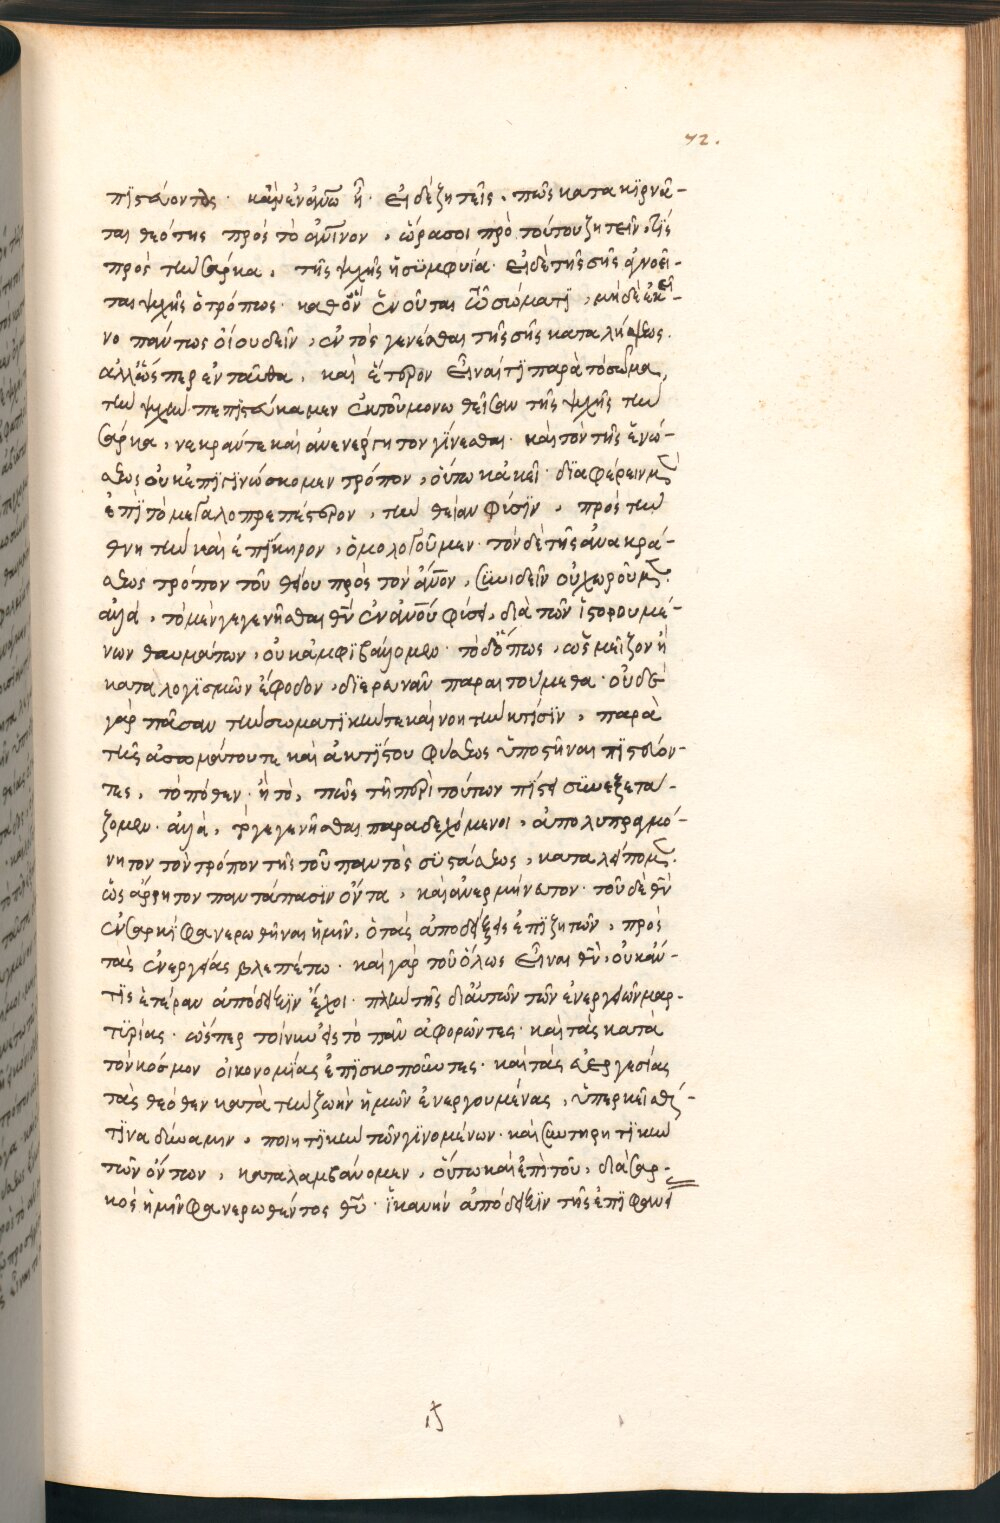 72.
πϊστεύοντες · κἀν ἐν ἀνω ἦ · εἰ δὲ ζητεῖς, πῶς κατακϊρνᾶ-
ται θεότης πρὸς τὸ ἀνινον, ὥρα σοι πρὸ τούτου ζητεῖν, τίς
πρὸς τὴν σάρκα, τῆς ψυχῆς ἡ σϋμφυΐα · εἰ δὲ τῆς σῆς ἀγνοεῖ-
ται ψυχῆς ὁ τρόπος · καθ ὃν ἑνοῦται τῶ σώματϊ, μηδὲ ἐκεῖ-
νο πάντως οἴου δεῖν, ἐντὸς γενέσθαι τῆς σῆς καταλήψεως.
ἀλλ ὥσπερ ἐνταῦθα, καὶ ἕτερον εἶναί τϊ παρὰ τὸ σῶμα,
τὴν ψυχὴν πεπϊστεύκαμεν ἐκ τοῦ μονωθεῖσαν τῆς ψυχῆς τὴν
σάρκα, νεκράν τε καὶ ἀνενέργητον γίνεσθαι · καὶ τὸν τῆς ἑνώ-
σεως οὐκ ἐπϊγϊνώσκομεν τρόπον, οὕτω κἀκεῖ · διαφέρειν μὲν
ἐπϊ τὸ μεγαλοπρεπέστερον, τὴν θείαν φύσϊν, πρὸς τὴν
θνητὴν καὶ ἐπϊκηρον, ὁμολογοῦμεν · τὸν δὲ τῆς ἀνακρά-
σεως τρόπον τοῦ θείου πρὸς τὸν ἀνον, συνιδεῖν οὐ χωροῦμεν.
ἀλλὰ, τὸ μὲν γεγενῆσθαι θν ἐν ἀνου φύσει, διὰ τῶν ἱστορουμέ-
νων θαυμάτων, οὐκ ἀμφϊβάλλομεν · τὸ δ ὅπως, ὡς μεῖζον ἢ
κατα λογϊσμῶν ἔφοδον, διερευνᾶν παραιτούμεθα · οὐδὲ
γὰρ πᾶσαν τὴν σωματϊκήν τε καὶ νοητὴν κτίσϊν, παρὰ
τῆς ἀσωμάτου τε καὶ ἀκτϊστου φύσεως ὑποστῆναι πϊστεύον-
τες, τὸ πόθεν · ἢ τὸ, πῶς τῆ περὶ τούτων πϊστει σϋνεξετά-
ζομεν · ἀλλὰ, τὸ γεγενῆσθαι παραδεχόμενοι, ἀπολυπραγμό-
νητον τὸν τρόπον τῆς τοῦ παντὸς σϋστάσεως, καταλείπομεν.
ὡς ἄρρητον παντάπασϊν ὄντα, καὶ ἀνερμήνευτον · τοῦ δὲ θν
ἐν σαρκὶ φανερωθῆναι ἡμῖν, ὁ τὰς ἀποδείξεις ἐπϊζητῶν, πρὸς
τὰς ἐνεργείας βλεπέτω · καὶ γὰρ τοῦ ὅλως εἶναι θν, οὐκ ἄν -
τϊς ἑτέραν ἀπόδειξϊν ἔχοι · πλὴν τῆς δι αὐτῶν τῶν ἐνεργειῶν μαρ-
τϋρίας · ὥσπερ τοίνυν εἰς τὸ πᾶν ἀφορῶντες · καὶ τὰς κατὰ
τὸν κόσμον οἰκονομίας ἐπϊσκοποῦντες · καὶ τὰς εὐεργεσίας
τὰς θεόθεν κατὰ τὴν ζωὴν ἡμῶν ἐνεργουμένας, ὑπερκεῖσθαί -
τϊνα δύναμιν, ποιητϊκὴν τῶν γϊνομένων · καὶ συντηρητϊκὴν
τῶν ὄντων, καταλαμβάνομεν, οὕτω καὶ ἐπὶ τοῦ, διὰ σαρ-
κὸς ἡμῖν φανερωθέντος θυ · ἱκανὴν ἀπόδειξϊν τῆς ἐπϊφανεί